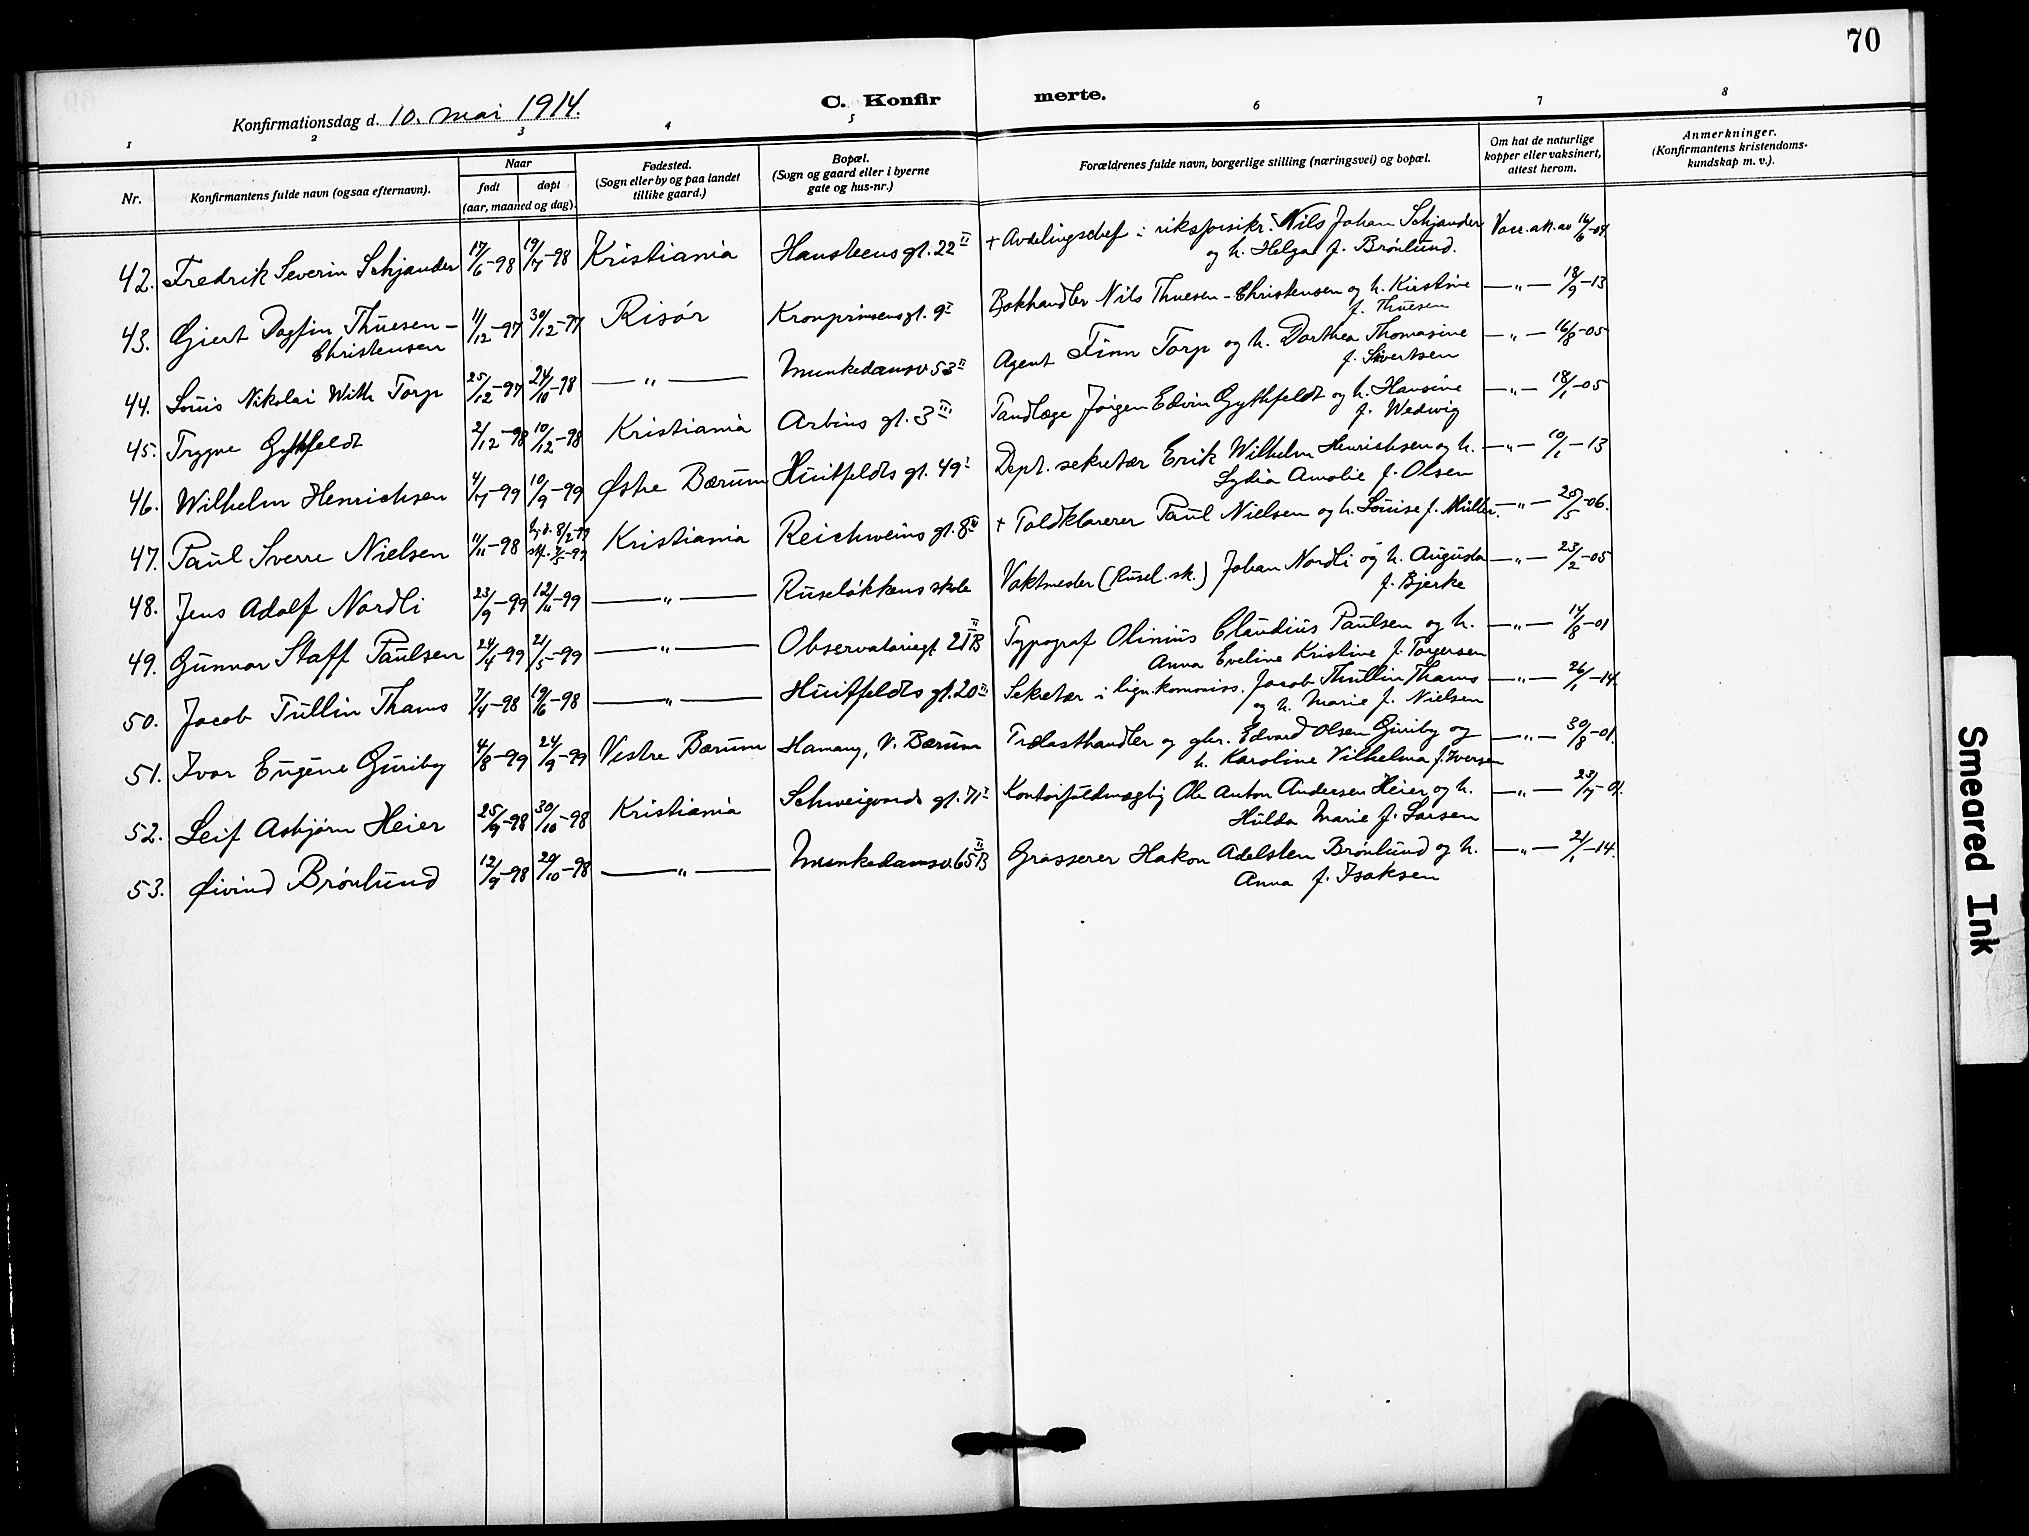 70
Konfirmationsdag d. 10. mai 1914.
C. Konfirmerte.
1 2 3 4 5 6 7 8
Nr.
Konfirmantens fulde navn (ogsaa efternavn).
Naar
født døpt
(aar, maaned og dag).
Fødested.
(Sogn eller by og paa landet
tillike gaard.)
Bopæl.
(Sogn og gaard eller i byerne
gate og hus-nr.)
Forældrenes fulde navn, borgerlige stilling (næringsvei) og bopæl.
Om hat de naturlige
kopper eller vaksinert,
attest herom.
Anmerkninger.
(Konfirmantens kristendoms-
kundskap m. v.).
42. Fredrik Severin Schjander 17/6-98 19/7-98 Kristiania Hansteens gt. 22 II + Avdelingschef i riksforsikr. Nils Johan Schjander Vacc. att. av 16/6-04
og h. Helga f. Brönlund.
43. Gjert Dagfin Thuesen- 11/12-97 30/12-97 Risör Kronprinsens gt. 9 I Bokhandler Nils Thuesen-Christensen og h. Kirstine —"— 18/9-13
Christensen f. Thuesen
44. Louis Nikolai With Torp 25/12-97 24/10-98 —"— Munkedamsv 53 II Agent Finn Torp og h. Dorthea Thomasine —"— 16/8-05
f. Sivertsen
45. Trygve Gythfeldt 2/12-98 10/12-98 Kristiania Arbins gt. 3 III Tandlæge Jörgen Edvin Gythfeldt og h. Hansine —"— 18/1-05
f. Wedwig
46. Wilhelm Henrichsen 4/7-99 10/9-99 Østre Bærum Huitfeldts gt. 49 I Dept. sekretær Erik Wilhelm Henrichsen og h. —"— 10/1-13
Lydia Amalie f. Olsen
47. Paul Sverre Nielsen 11/11-98 hj.d. 8/2-99 Kristiania Reichweins gt. 8 IV + Toldklarerer Paul Nielsen og h. Louise f. Müller. —"— 25/5-06.
stf. 7/5-99
48. Jens Adolf Nordli 23/9-99 12/11-99 —"— Ruselökkens skole Vaktmester (Rusel. sk.) Johan Nordli og h. Augusta —"— 23/2-05
f. Bjerke
49. Gunnar Staff Paulsen 24/4-99 21/5-99 —"— Observatoriegt 21 B II Typograf Olinius Claudius Paulsen og h. —"— 14/8-01
Anna Eveline Kristine f. Torgersen
50. Jacob Tullin Thams 7/4-98 19/6-98 —"— Huitfeldts gt. 20 II Sekretær i lign.kommiss. Jacob Thullin Thams —"— 26/1-14.
og h. Marie f. Nielsen
51. Ivar Eugène Guriby 4/8-99 24/9-99 Vestre Bærum Hamang, V. Bærum Trælasthandler og gbr. Edvard Olsen Guriby og —"— 30/8-01.
h. Karoline Vilhelma f. Iversen
52. Leif Asbjørn Heier 25/9-98 30/10-98 Kristiania Schweigaards gt. 71 I Kontorfuldmægtig Ole Anton Andersen Heier og h. —"— 23/7-01.
Hulda Marie f. Larsen
53. Øivind Brönlund 12/9-98 20/10-98 —"— Munkedamsv. 65 B II Grosserer Hakon Adelsten Brönlund og h. —"— 21/1-14.
Anna f. Isaksen
Smeared Ink